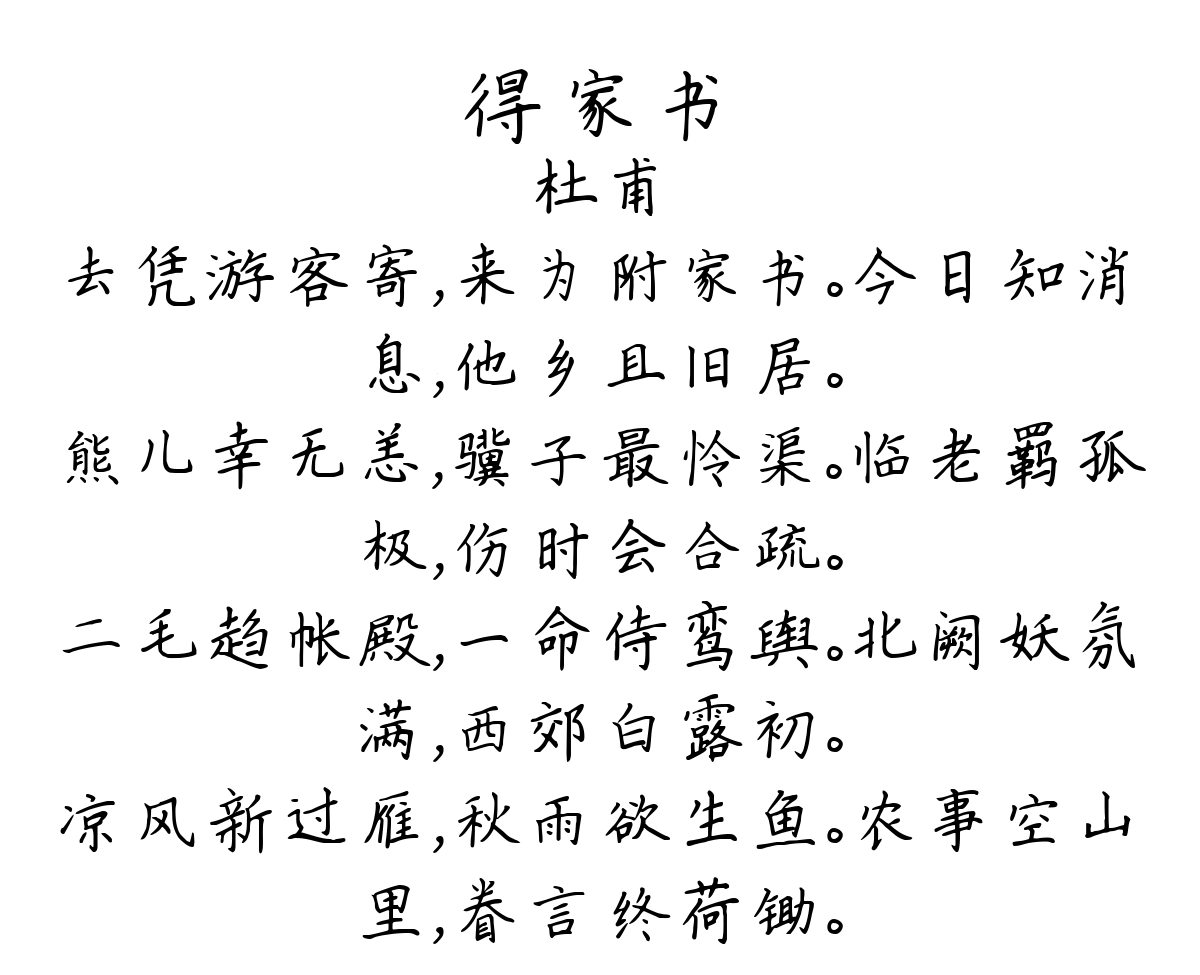 得家书
杜甫
去凭游客寄,来为附家书。今日知消
息,他乡且旧居。
熊儿幸无恙,骥子最怜渠。临老羁孤
极,伤时会合疏。
二毛趋帐殿,一命侍鸾舆。北阙妖氛
满,西郊白露初。
凉风新过雁,秋雨欲生鱼。农事空山
里,眷言终荷锄。